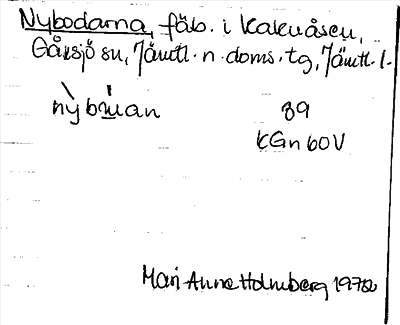 Nybodarna, fäb. i Kakuåsen,
Gåxsjö sn, Jämtl. n. doms. tg, Jämtl. l.
39
KGn 60V
Mari Anne Holmberg 1972